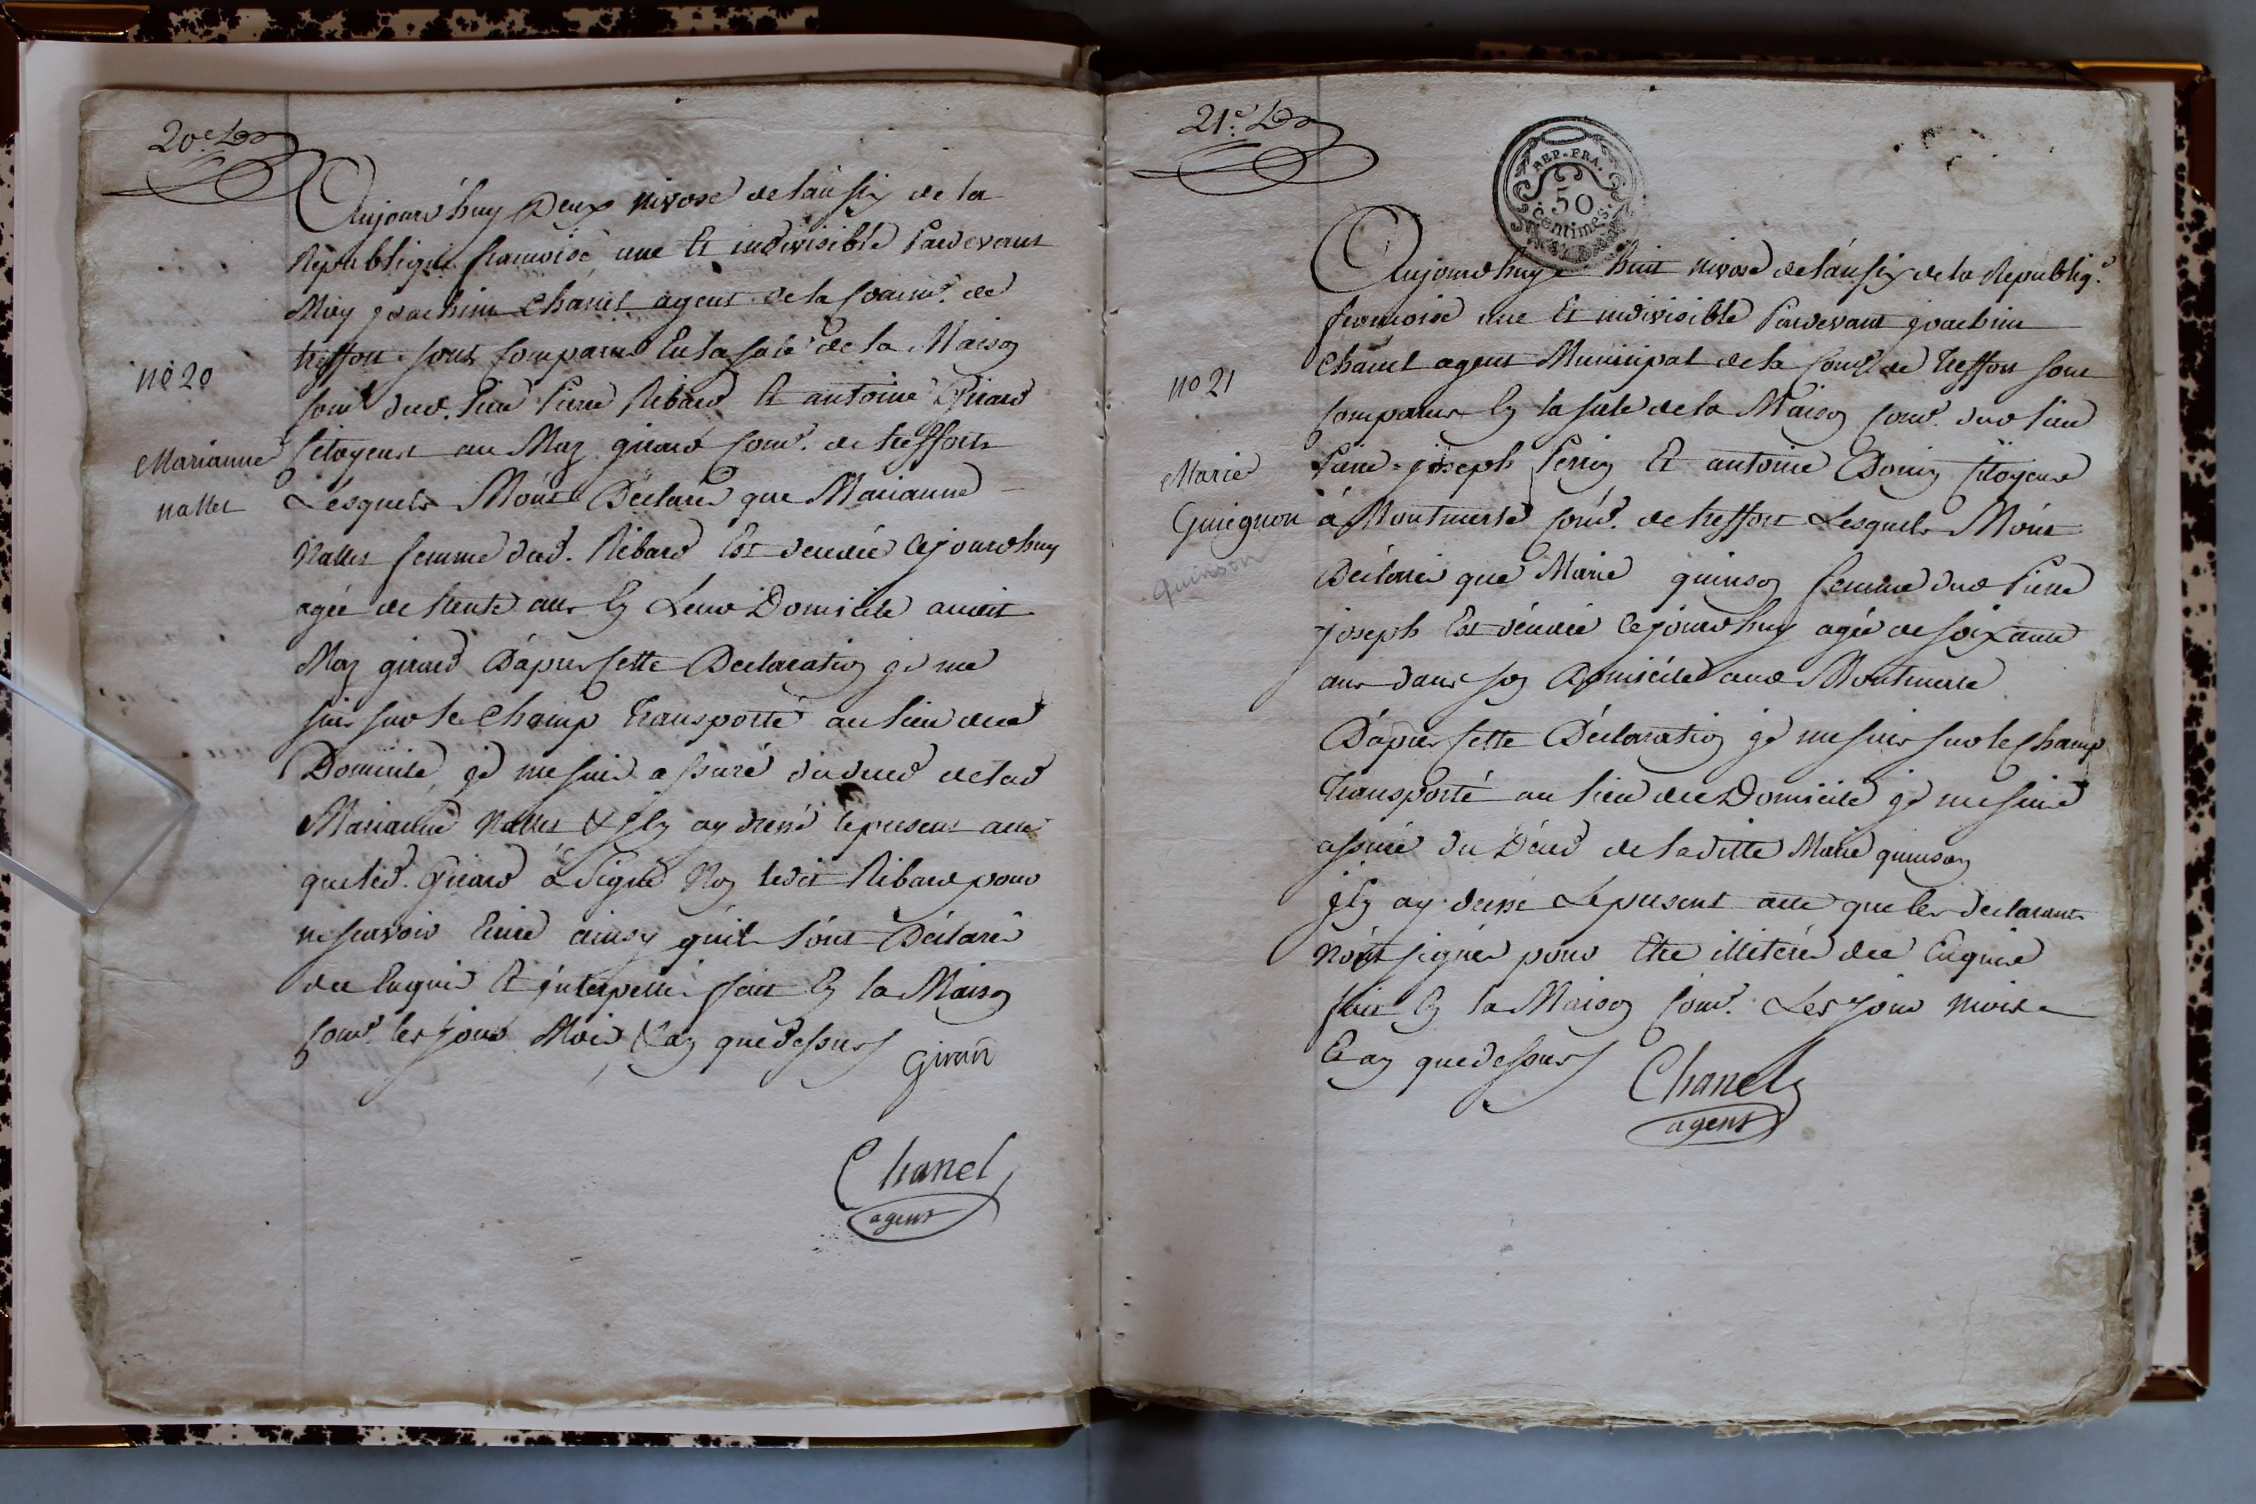 20e
Aujourd'huy Deux nivose de l'an six de la
République francoise une Et indivisible Pardevant
Moy joachim Chanel agent de la Comne. de
treffort sont Comparus En la sale de la Maison
Com̃e dud. lieu Pierre Ribard Et antoine Girard
Citoyens au Maz girard Com̃e. de treffort
Lesquels M'ont Déclaré que Marianne
Nallet femme dud. Ribard Est décédée cejourdhuy
agée de trente ans En Leur Domicile audit
Maz girard D'apres cette Declaration je me
suis sur le Champ Transporté au lieu du
Domicile, je me suis assuré du décéd de lad
Marianne Nallet & J'en ay dressé le présent acte
que led. Girard à Signé Non ledit Ribard pour
ne scavoir Ecrire ainsy qu'ils L'ont Déclaré
de Enquis Et interpellé fait En la Maison
Com̃e. les jour Mois & an que dessus
Girard
Chanel
agent
no 20
Marianne
nallet
21e
REP. FRA.
50
centimes.
Aujourdhuy huit nivose de l'an six de la Republiq.e
francoise une Et indivisible Pardevant joachim
Chanel agent Municipal de la Com̃e de Treffort sont
Comparus En la sale de la Maison Com̃e. dud lieu
Pierre-joseph Perrin Et antoine Donin Citoyens
à Montmerle Com̃e. de treffort Lesquels M'ont
Déclaré que Marie quinson femme dud Pierre
joseph Est décédée cejourdhuy agée de soixante
ans dans son Domicile aud Montmerle
D'apres cette Déclaration je me suis sur le Champ
Transporté au lieu du Domicile je me suis
assuré du Décéd de laditte Marie quinson
J'en ay dressé Le présent acte que les déclarants
N'ont signés pour Etre illiterés de Enquis
fait En la Maison Com̃e. Les jour mois
Et an que dessus
Chanel
agent
no 21
Marie
Guiegnon
quinson